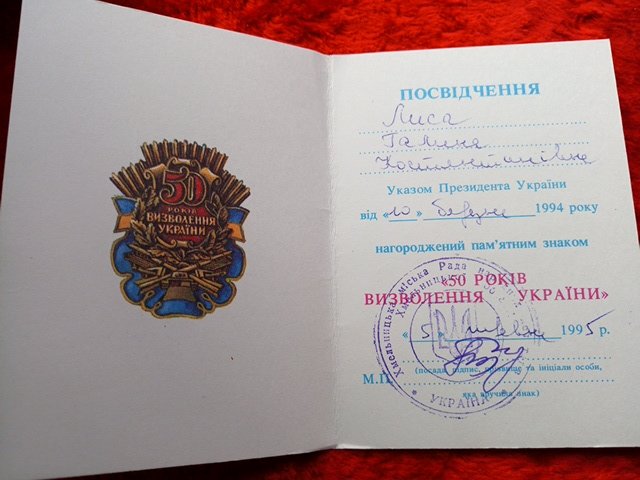 50
РОКІВ
ВИЗВОЛЕННЯ
УКРАЇНИ
ПОСВІДЧЕННЯ
Лиса
Галина
Костянтинівна
Указом Президента України
від «10» березня 1994 року
нагороджений пам'ятним знаком
«50 РОКІВ
ВИЗВОЛЕННЯ УКРАЇНИ»
«5» 1995 р.
(посада, підпис, прізвище та ініціали особи,
М.П.
яка вручила знак)
Хмельницька міська Рада
УКРАЇНА